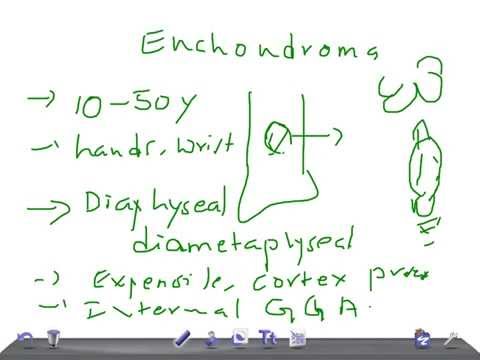 Enchondroma
→ 10-50y
→ hands, wrist
→ Diaphyseal
diametaphyseal
→ Expensile, cortex
→ Internal GGA.
Tt